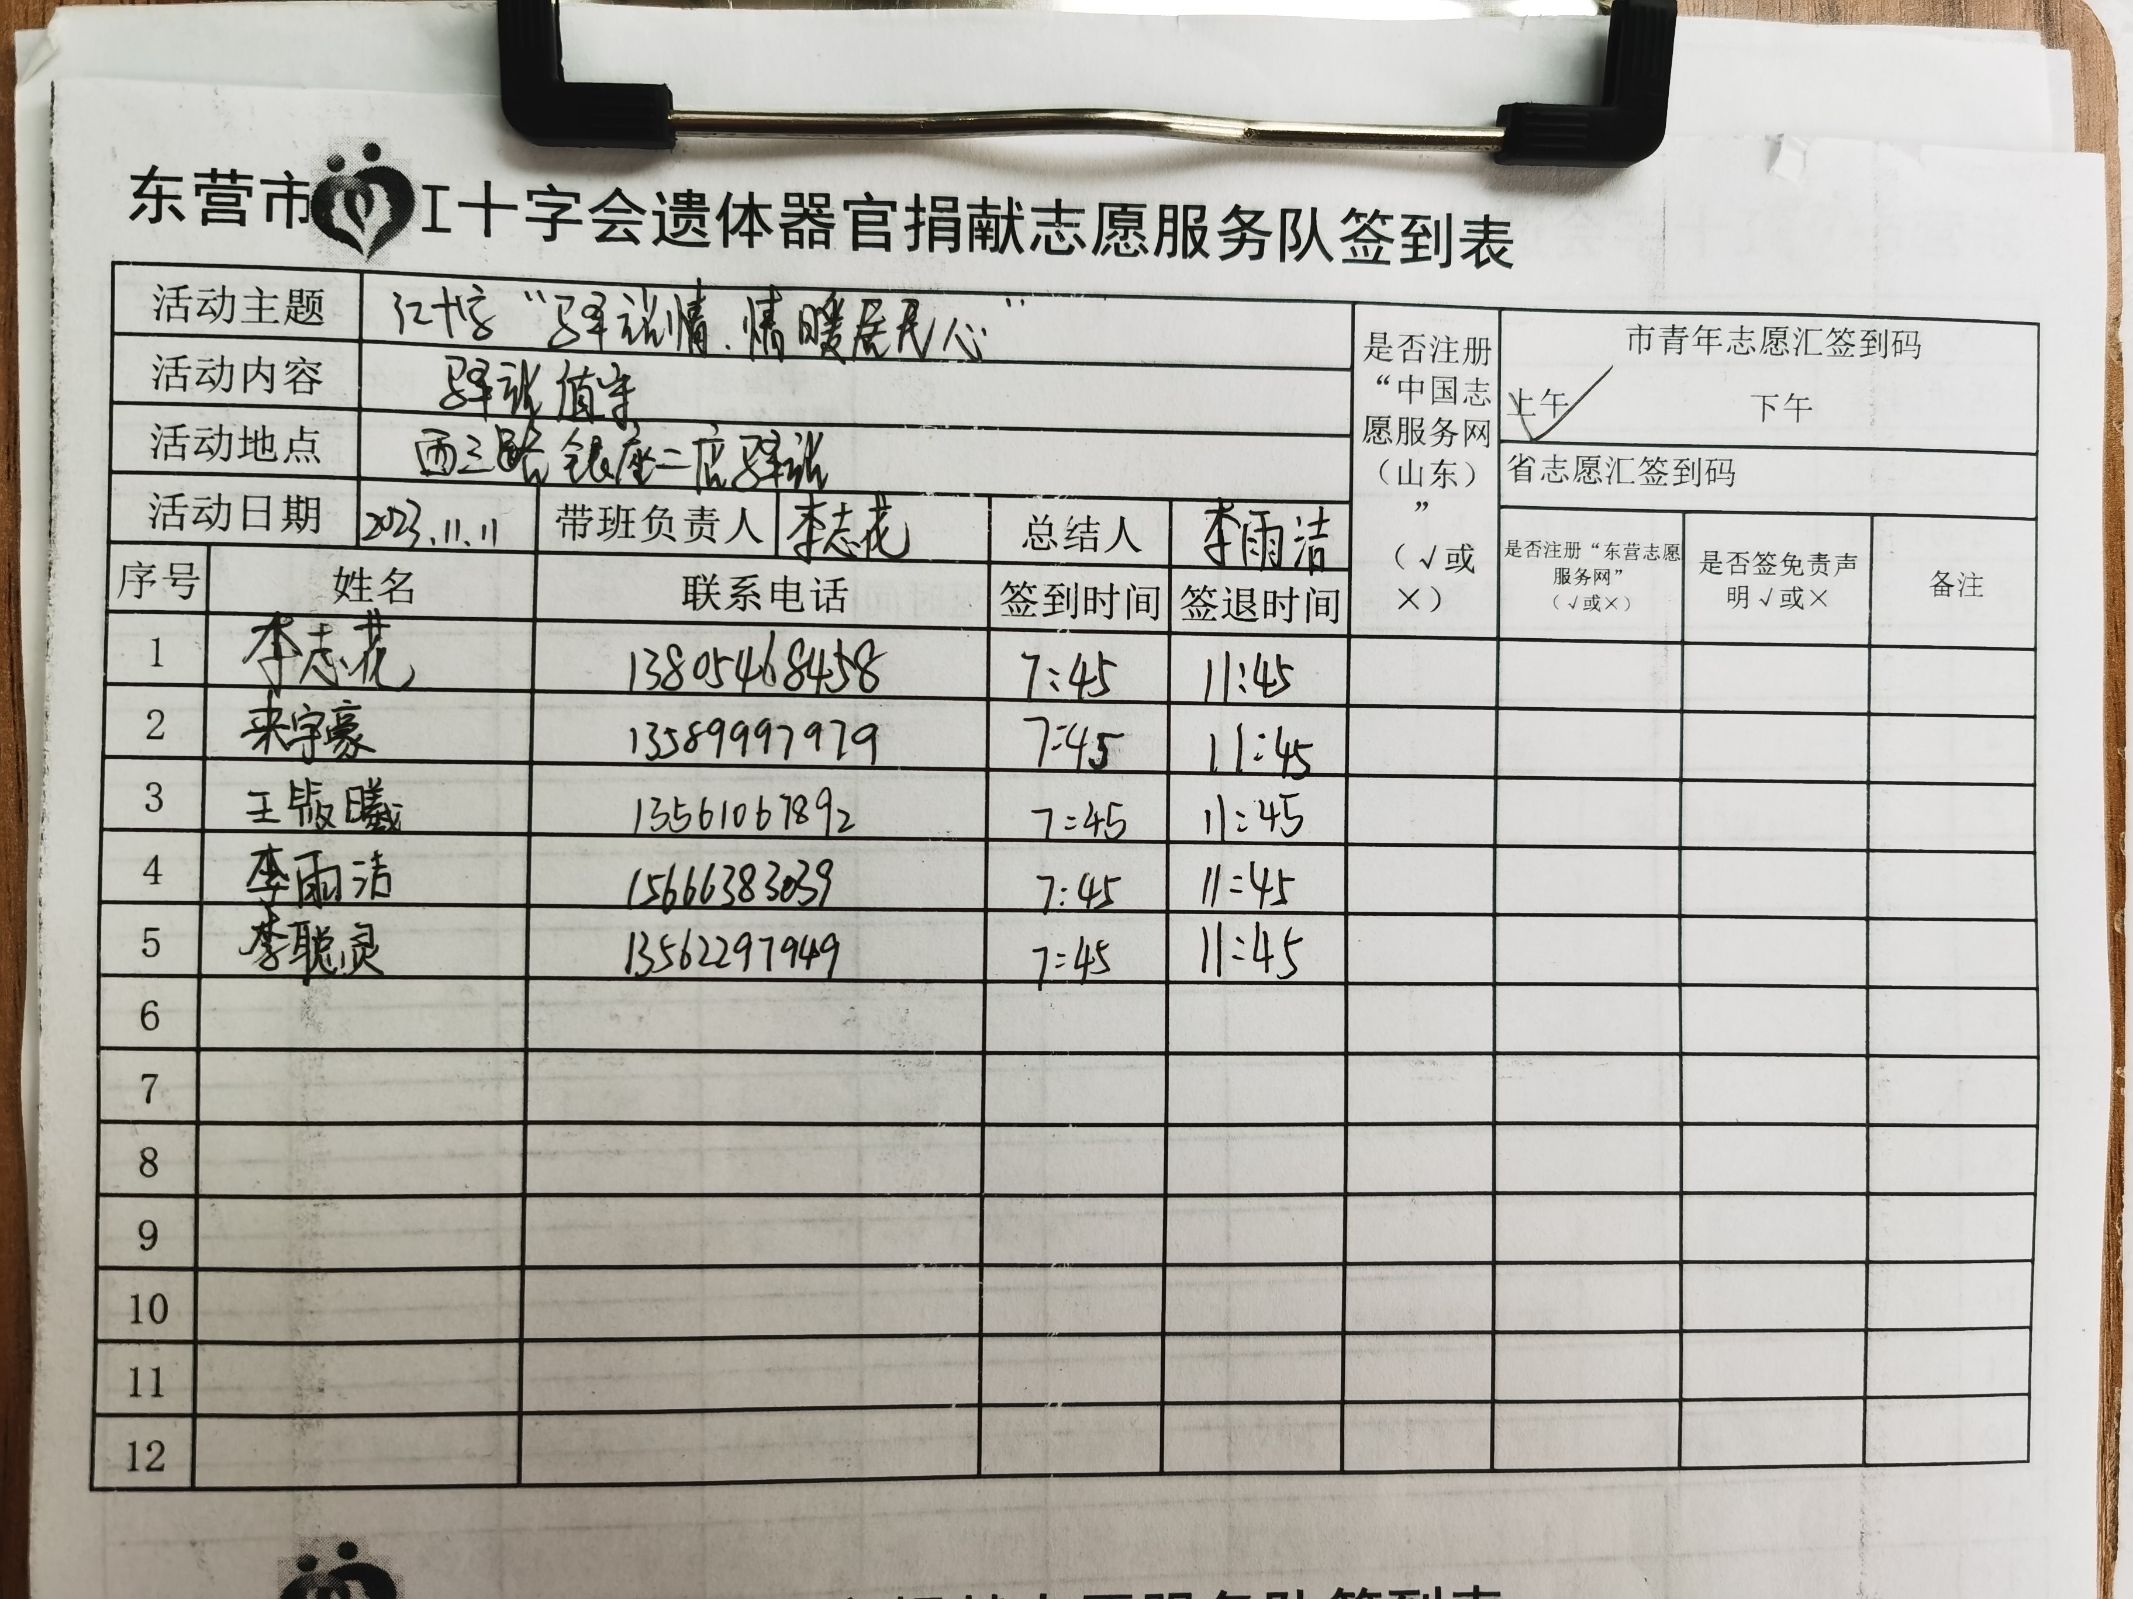 东营市红十字会遗体器官捐献志愿服务队签到表
活动主题 红十字“驿站情.情暖居民心”
活动内容 驿站值守
活动地点 西三路银座二店驿站
是否注册“中国志愿服务网（山东）”（√或×）
市青年志愿汇签到码
上午 √ 下午
省志愿汇签到码
活动日期 2023.11.11 带班负责人 李志花 总结人 李雨洁
序号 姓名 联系电话 签到时间 签退时间 是否注册“东营志愿服务网”（√或×） 是否签免责声明√或× 备注
1 李志花 13805468458 7:45 11:45
2 来宇豪 13589997979 7:45 11:45
3 王 曦 13561067892 7:45 11:45
4 李雨洁 15666383039 7:45 11:45
5 李聪灵 13562297949 7:45 11:45
6
7
8
9
10
11
12
志愿服务队签到表